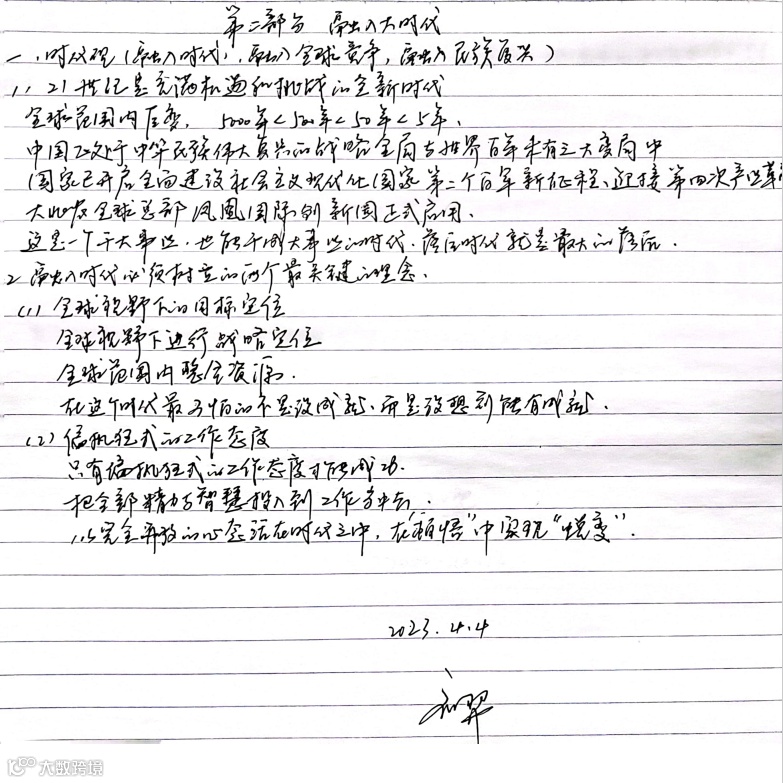 第二部分 融入大时代
一、时代观(融入时代,融入全球竞争,融入民族复兴)
1、21世纪是充满机遇和挑战的全新时代
全球范围内巨变, 5000年<500年<50年<5年.
中国正处于中华民族伟大复兴的战略全局与世界百年未有之大变局中
国家已开启全面建设社会主义现代化国家第二个百年新征程、迎接第四次产业革
大北农全球总部凤凰国际创新园正式启用.
这是一个干大事业,也能干成大事业的时代.落后时代就是最大的落后.
2、融入时代必须树立的两个最关键的理念.
(1)全球视野下的目标定位
全球视野下进行战略定位
全球范围内整合资源.
在这个时代最可怕的不是没成就、而是没想到能有成就.
(2)偏执狂式的工作态度
只有偏执狂式的工作态度才能成功.
把全部精力与智慧投入到工作当中去.
以完全开放的心态活在时代之中,在"顿悟"中实现"蜕变".
2023.4.4
大数跨境